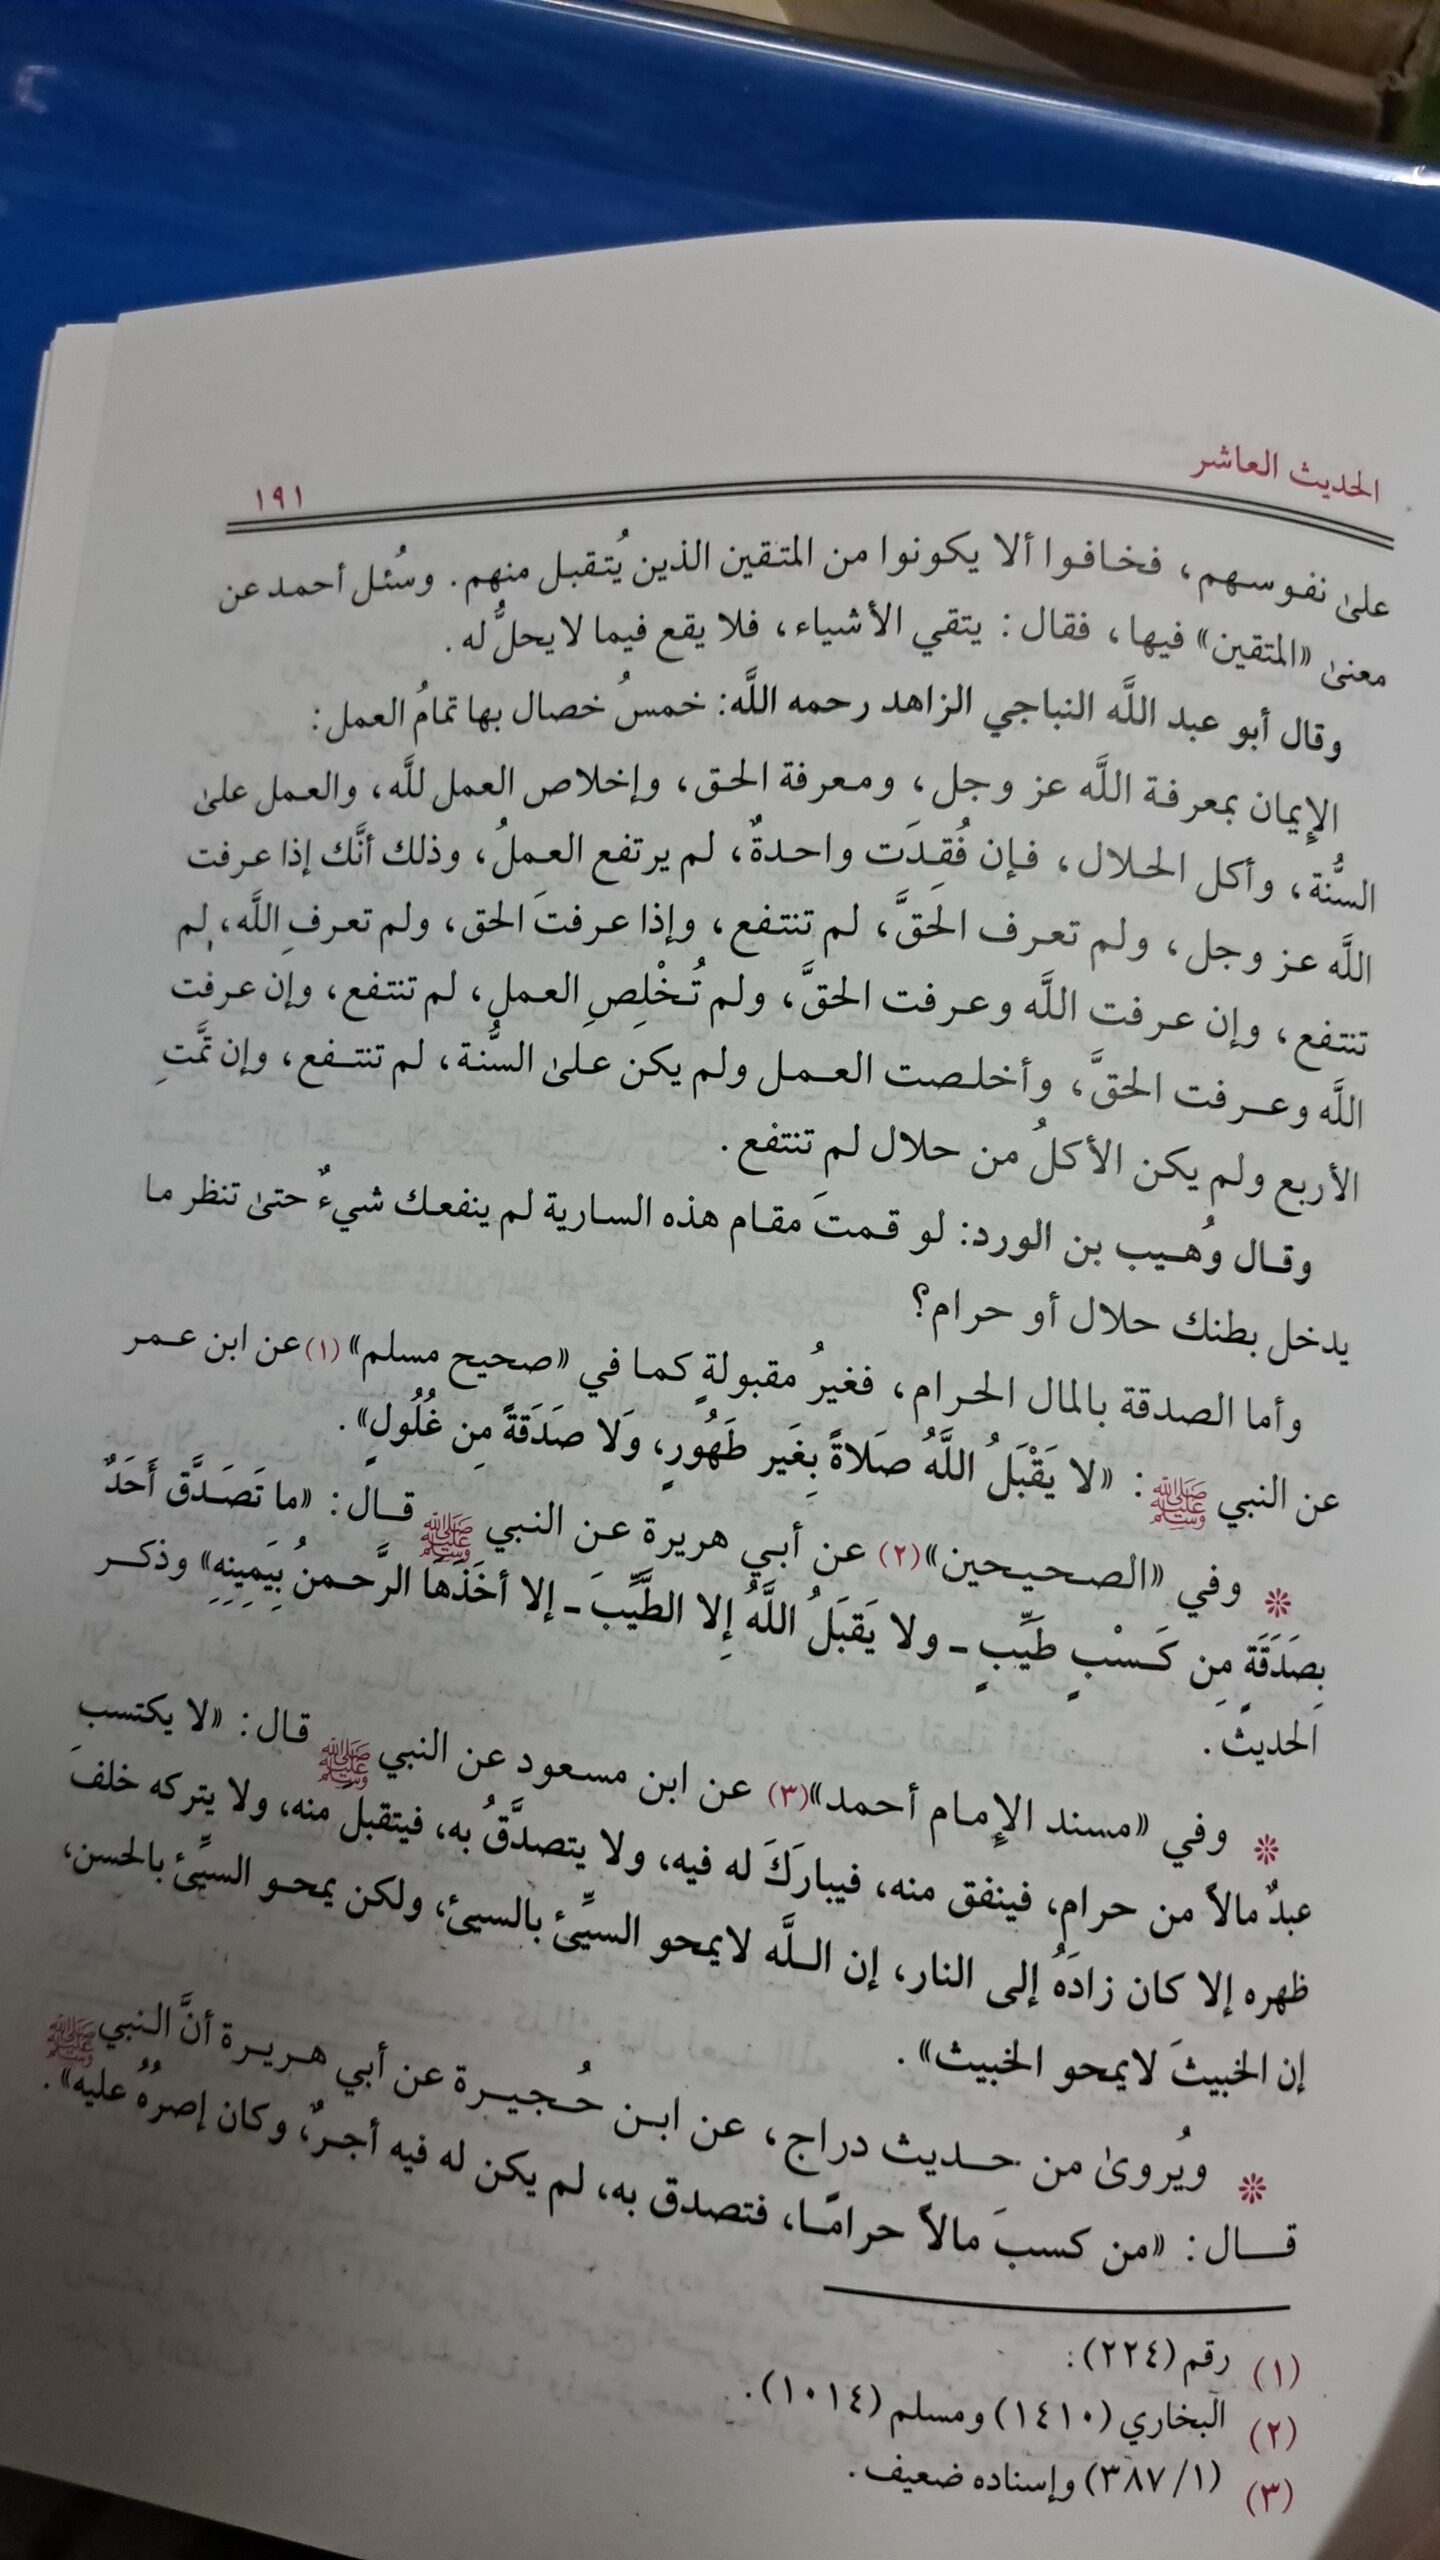 الحديث العاشر
١٩١
على نفوسهم، فخافوا ألا يكونوا من المتقين الذين يُتقبل منهم. وسُئل أحمد عن
معنى «المتقين» فيها، فقال: يتقي الأشياء، فلا يقع فيما لا يحلُّ له.
وقال أبو عبد اللَّه النباجي الزاهد رحمه اللَّه: خمسُ خصال بها تمامُ العمل:
الإيمان بمعرفة اللَّه عز وجل، ومعرفة الحق، وإخلاص العمل للَّه، والعمل على
السُّنة، وأكل الحلال، فإن فُقِدَت واحدةٌ، لم يرتفع العملُ، وذلك أنَّك إذا عرفت
اللَّه عز وجل، ولم تعرف الحقَّ، لم تنتفع، وإذا عرفتَ الحق، ولم تعرفِ اللَّه، لم
تنتفع، وإن عرفت اللَّه وعرفت الحقَّ، ولم تُخْلِصِ العمل، لم تنتفع، وإن عرفت
اللَّه وعرفت الحقَّ، وأخلصت العمل ولم يكن على السُّنة، لم تنتفع، وإن تمَّتِ
الأربع ولم يكن الأكلُ من حلال لم تنتفع.
وقال وُهيب بن الورد: لو قمتَ مقام هذه السارية لم ينفعك شيءٌ حتى تنظر ما
يدخل بطنك حلال أو حرام؟
وأما الصدقة بالمال الحرام، فغيرُ مقبولةٍ كما في «صحيح مسلم»(١) عن ابن عمر
عن النبي ﷺ: «لا يَقْبَلُ اللَّهُ صَلاةً بِغَير طَهُورٍ، وَلا صَدَقةً مِن غُلُولٍ».
❊ وفي «الصحيحين»(٢) عن أبي هريرة عن النبي ﷺ قال: «ما تَصَدَّق أَحَدٌ
بِصَدَقَةٍ مِن كَسْبٍ طَيِّبٍ - ولا يَقبَلُ اللَّهُ إِلا الطَّيِّبَ - إلا أخَذَها الرَّحمنُ بِيَمِينِهِ» وذكر
الحديث.
❊ وفي «مسند الإمام أحمد»(٣) عن ابن مسعود عن النبي ﷺ قال: «لا يكتسب
عبدٌ مالاً من حرام، فينفق منه، فيبارَكَ له فيه، ولا يتصدَّقُ به، فيتقبل منه، ولا يتركه خلفَ
ظهره إلا كان زادَهُ إلى النار، إن اللَّه لا يمحو السيِّئ بالسيئ، ولكن يمحو السيِّئ بالحسن،
إن الخبيثَ لا يمحو الخبيث».
❊ ويُروى من حديث دراج، عن ابن حُجيرة عن أبي هريرة أنَّ النبي ﷺ
قال: «من كسبَ مالاً حرامًا، فتصدق به، لم يكن له فيه أجرٌ، وكان إصرُهُ عليه».
(١) رقم (٢٢٤).
(٢) البخاري (١٤١٠) ومسلم (١٠١٤).
(٣) (٣٨٧/١) وإسناده ضعيف.